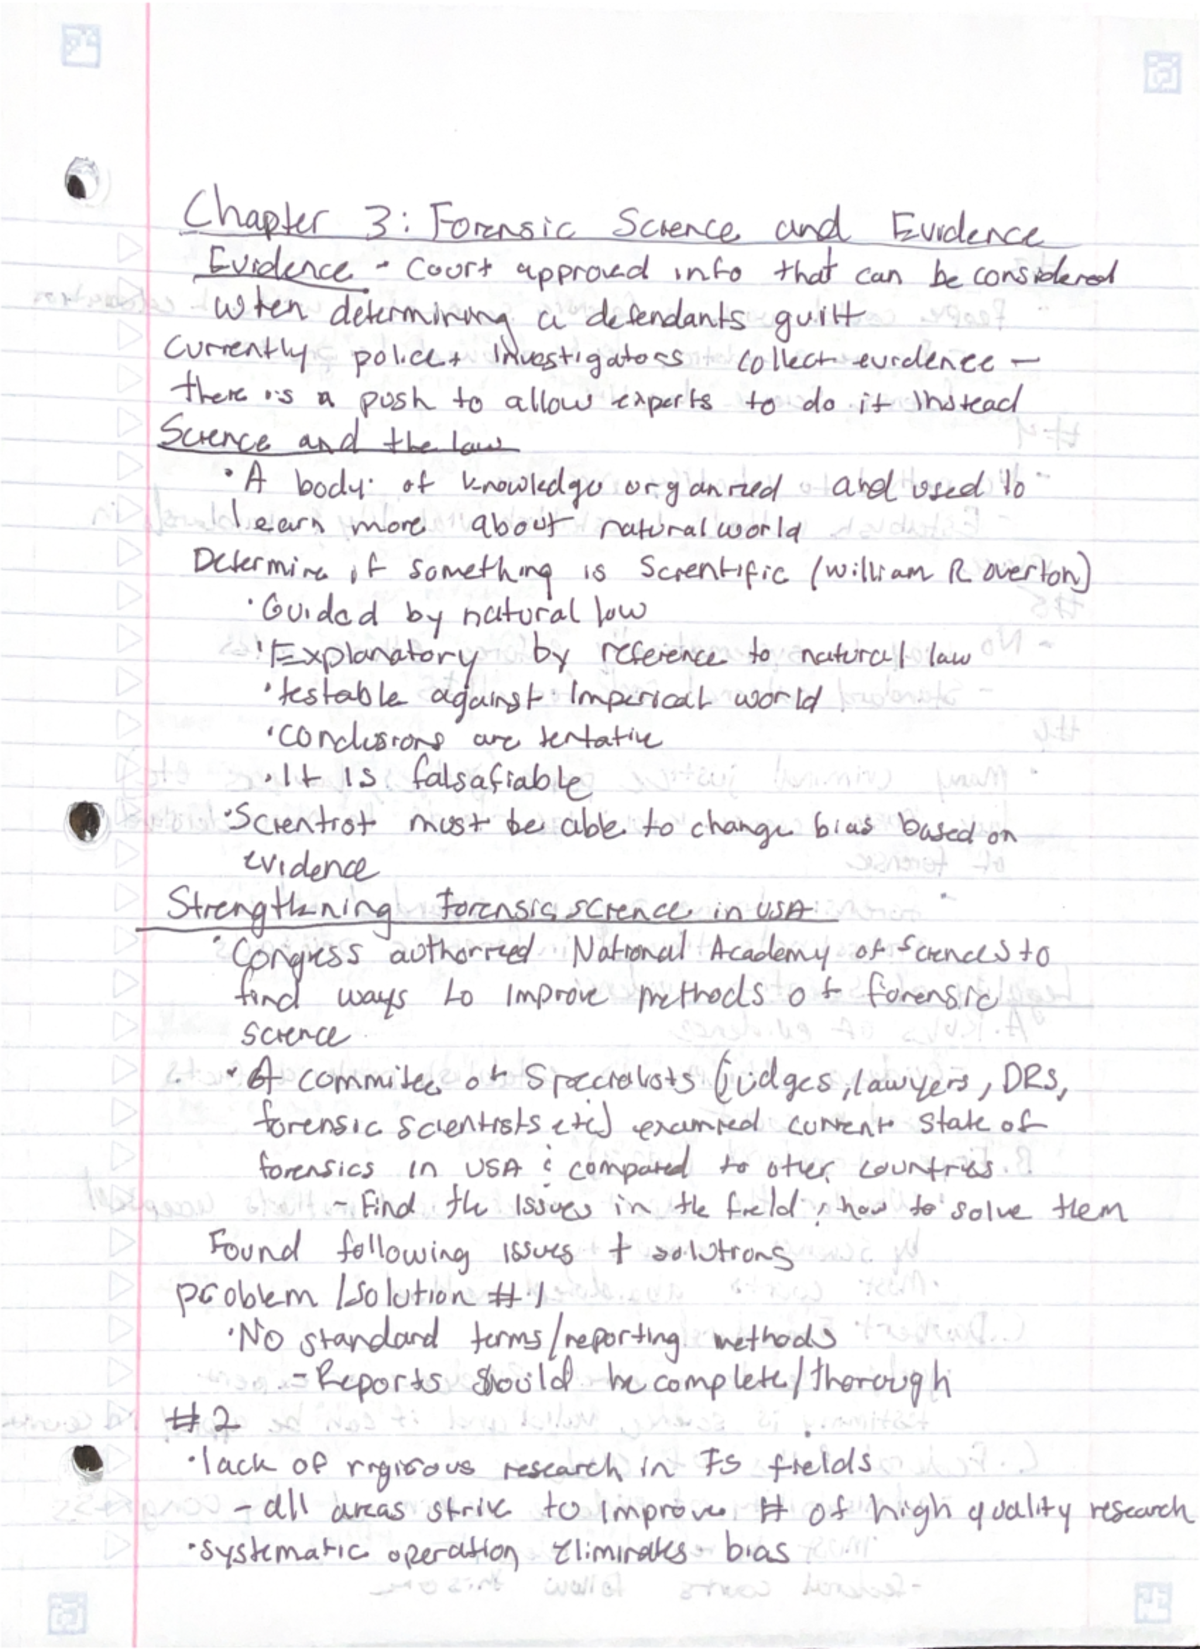 Chapter 3: Forensic Science and Evidence
Evidence - Court approved info that can be considered
when determining a defendants guilt
Currently police + investigators collect evidence -
there is a push to allow experts to do it instead
Science and the law
• A body of knowledge organized and used to
learn more about natural world
Determine if something is Scientific (William R Overton)
• Guided by natural law
• Explanatory by reference to natural law
• testable against Imperical world
• conclusions are tentative
• It is falsafiable
• Scientist must be able to change bias based on
evidence
Strengthning Forensic science in USA
• Congress authorized National Academy of Sciences to
find ways to improve methods of forensic
science
• A commitee of Specialists (judges, lawyers, DRS,
forensic scientists etc) examined current state of
forensics in USA & compared to other countries
- Find the issues in the field & how to solve them
Found following issues + solutions
problem / solution #1
• No standard terms/reporting methods
- Reports should be complete/thorough
#2
• lack of rigirous research in FS fields
- all areas strive to improve # of high quality research
• systematic operation eliminates bias